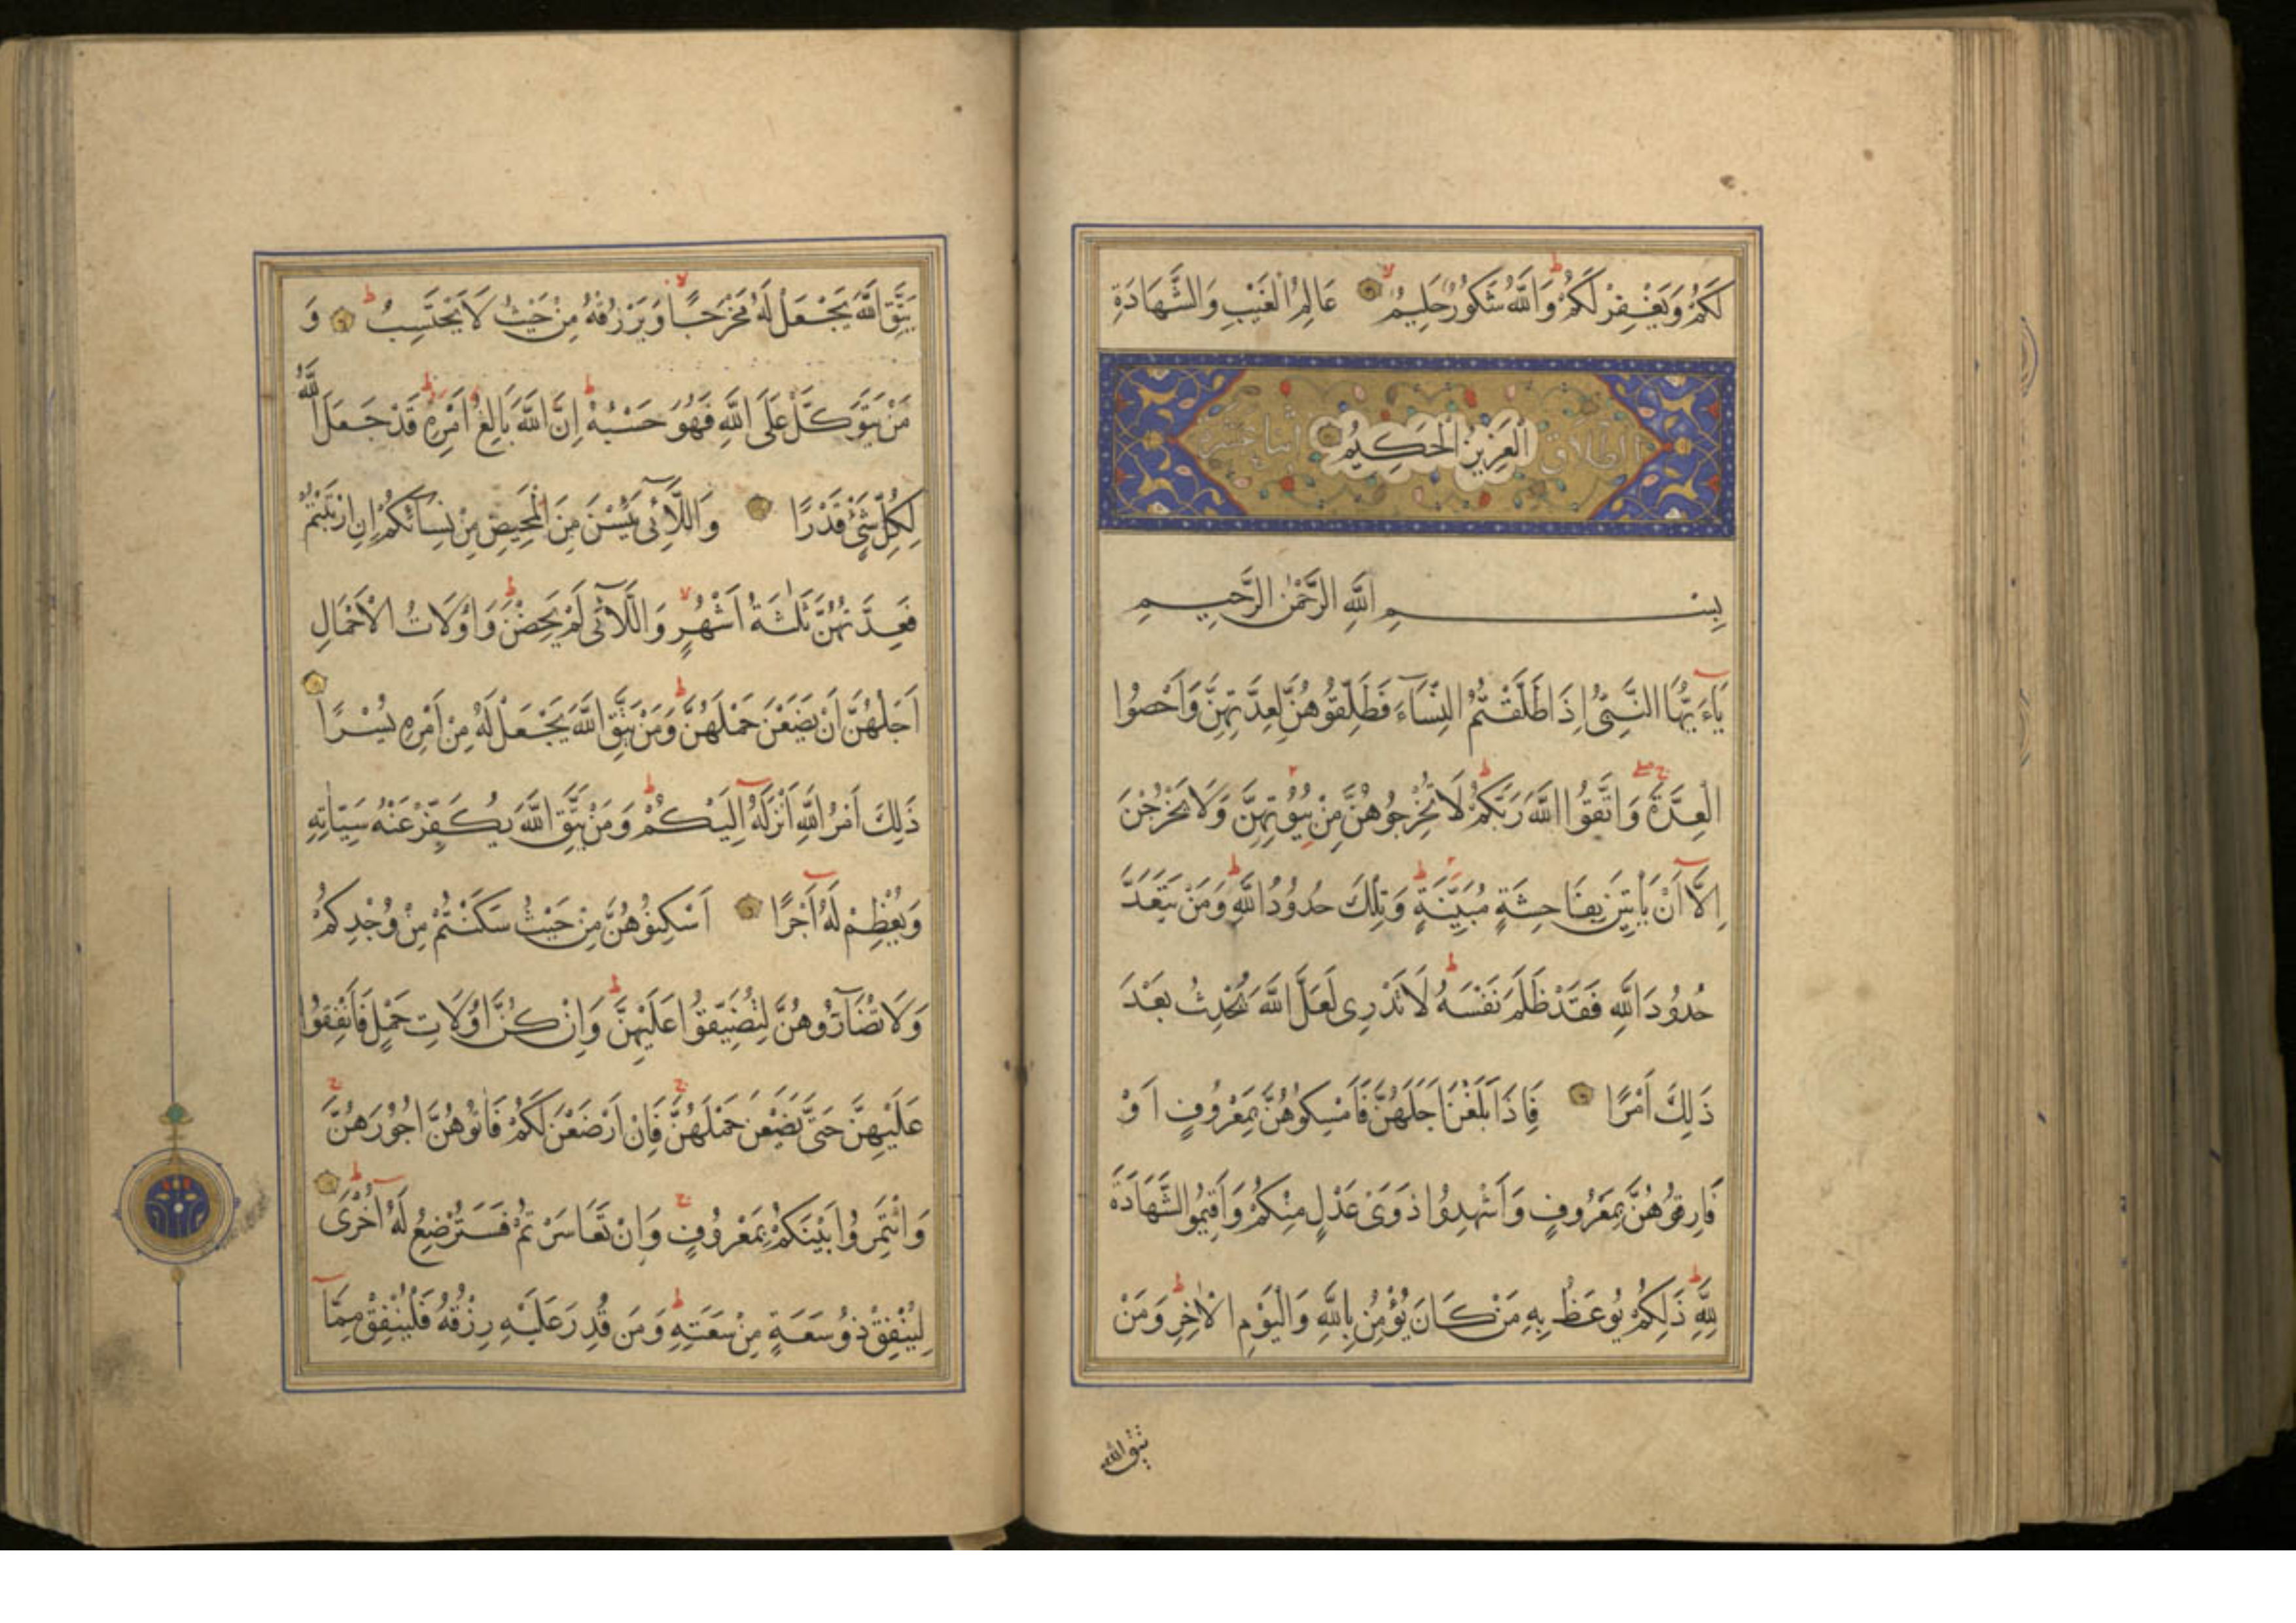 لَكُمْ وَيَغْفِرْ لَكُمْ وَاللَّهُ شَكُورٌ حَلِيمٌ عَالِمُ الْغَيْبِ وَالشَّهَادَةِ
الْعَزِيزُ الْحَكِيمُ
الطلاق اثنا عشرة
بِسْمِ اللَّهِ الرَّحْمٰنِ الرَّحِيمِ
يَآءَيُّهَا النَّبِيُّ اِذَا طَلَّقْتُمُ النِّسَآءَ فَطَلِّقُوهُنَّ لِعِدَّتِهِنَّ وَاَحْصُوا
الْعِدَّةَ وَاتَّقُوا اللَّهَ رَبَّكُمْ لَا تُخْرِجُوهُنَّ مِنْ بُيُوتِهِنَّ وَلَا يَخْرُجْنَ
اِلَّآ اَنْ يَأْتِينَ بِفَاحِشَةٍ مُبَيِّنَةٍ وَتِلْكَ حُدُودُ اللَّهِ وَمَنْ يَتَعَدَّ
حُدُودَ اللَّهِ فَقَدْ ظَلَمَ نَفْسَهُ لَا تَدْرِى لَعَلَّ اللَّهَ يُحْدِثُ بَعْدَ
ذَلِكَ اَمْرًا فَاِذَا بَلَغْنَ اَجَلَهُنَّ فَاَمْسِكُوهُنَّ بِمَعْرُوفٍ اَوْ
فَارِقُوهُنَّ بِمَعْرُوفٍ وَاَشْهِدُوا ذَوَىْ عَدْلٍ مِنْكُمْ وَاَقِيمُوا الشَّهَادَةَ
لِلَّهِ ذَلِكُمْ يُوعَظُ بِهِ مَنْ كَانَ يُؤْمِنُ بِاللَّهِ وَالْيَوْمِ الْاٰخِرِ وَمَنْ
يتق الله
يَتَّقِ اللَّهَ يَجْعَلْ لَهُ مَخْرَجًا وَيَرْزُقْهُ مِنْ حَيْثُ لَا يَحْتَسِبُ وَ
مَنْ يَتَوَكَّلْ عَلَى اللَّهِ فَهُوَ حَسْبُهُ اِنَّ اللَّهَ بَالِغُ اَمْرِهِ قَدْ جَعَلَ اللَّهُ
لِكُلِّ شَىْءٍ قَدْرًا وَاللَّآئِى يَئِسْنَ مِنَ الْمَحِيضِ مِنْ نِسَآئِكُمْ اِنِ ارْتَبْتُمْ
فَعِدَّتُهُنَّ ثَلٰثَةُ اَشْهُرٍ وَاللَّآئِى لَمْ يَحِضْنَ وَاُولَاتُ الْاَحْمَالِ
اَجَلُهُنَّ اَنْ يَضَعْنَ حَمْلَهُنَّ وَمَنْ يَتَّقِ اللَّهَ يَجْعَلْ لَهُ مِنْ اَمْرِهِ يُسْرًا
ذَلِكَ اَمْرُ اللَّهِ اَنْزَلَهُ اِلَيْكُمْ وَمَنْ يَتَّقِ اللَّهَ يُكَفِّرْ عَنْهُ سَيِّئَاتِهِ
وَيُعْظِمْ لَهُ اَجْرًا اَسْكِنُوهُنَّ مِنْ حَيْثُ سَكَنْتُمْ مِنْ وُجْدِكُمْ
وَلَا تُضَآرُّوهُنَّ لِتُضَيِّقُوا عَلَيْهِنَّ وَاِنْ كُنَّ اُولَاتِ حَمْلٍ فَاَنْفِقُوا
عَلَيْهِنَّ حَتَّى يَضَعْنَ حَمْلَهُنَّ فَاِنْ اَرْضَعْنَ لَكُمْ فَاٰتُوهُنَّ اُجُورَهُنَّ
وَائْتَمِرُوا بَيْنَكُمْ بِمَعْرُوفٍ وَاِنْ تَعَاسَرْتُمْ فَسَتُرْضِعُ لَهُ اُخْرَى
لِيُنْفِقْ ذُو سَعَةٍ مِنْ سَعَتِهِ وَمَنْ قُدِرَ عَلَيْهِ رِزْقُهُ فَلْيُنْفِقْ مِمَّآ